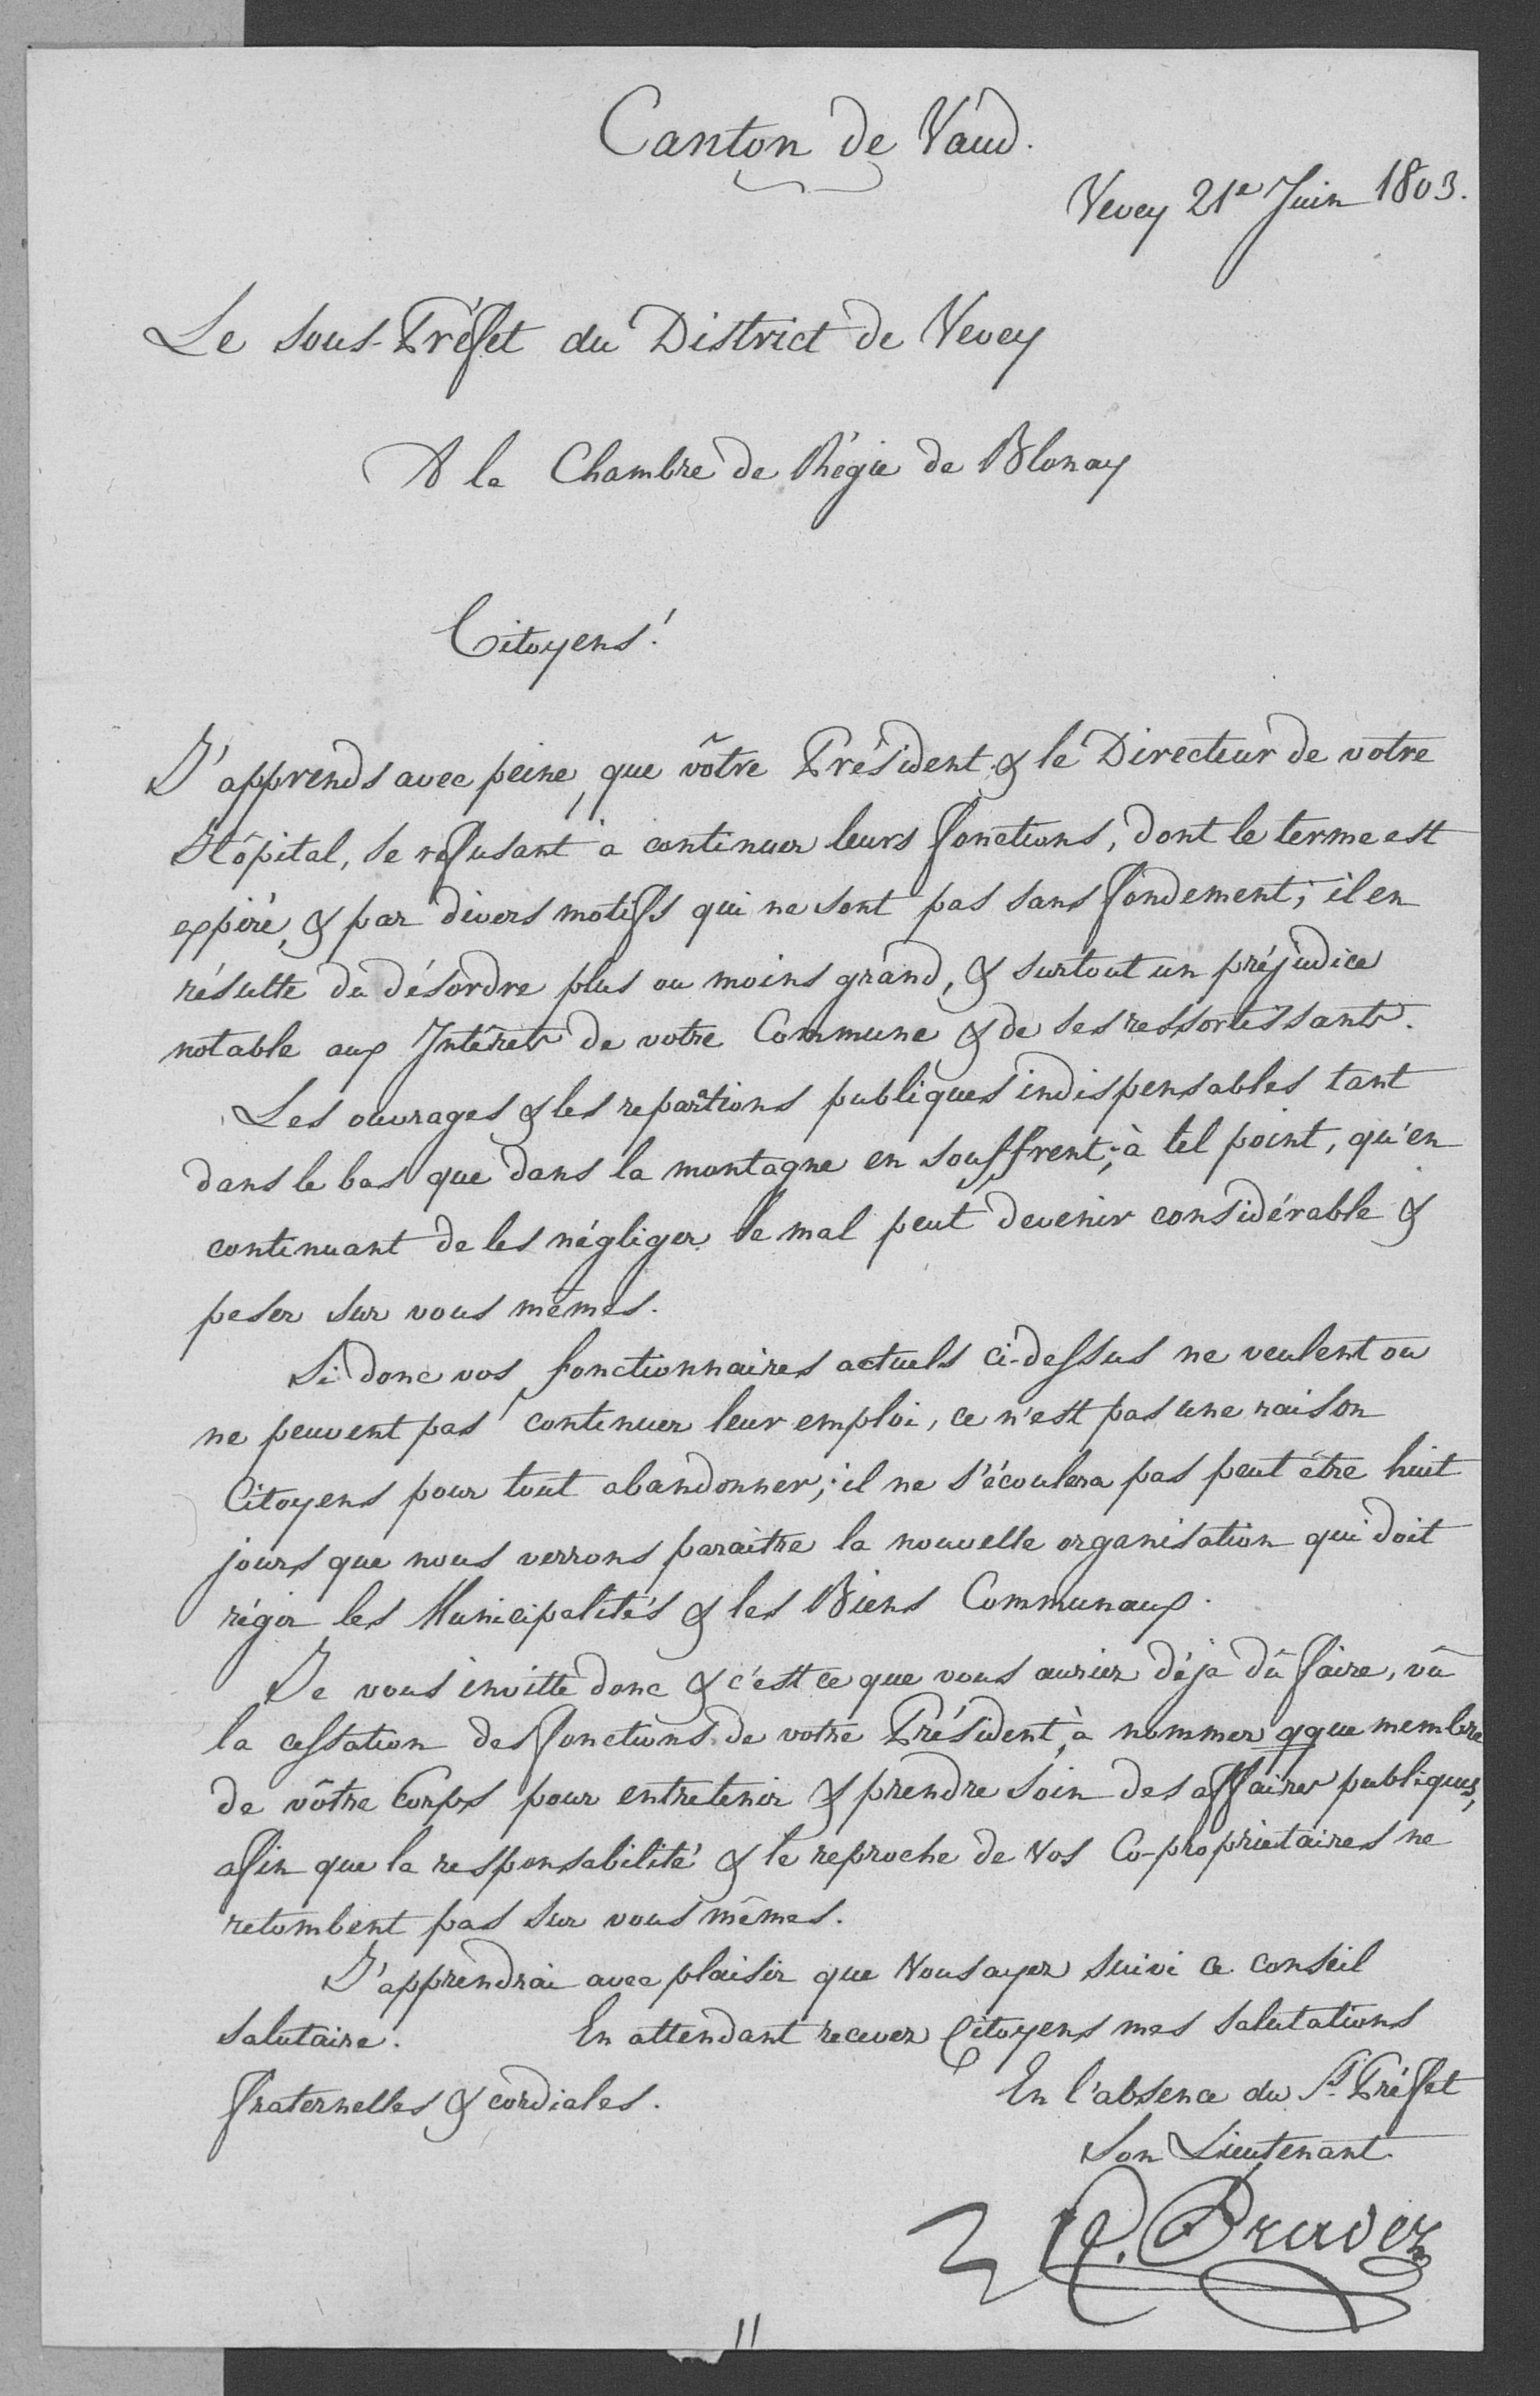 Canton de Vaud.
Vevey 21e Juin 1803.
Le sous-Préfet du District de Vevey
A la Chambre de Régie de Blonay
Citoyens!
J'apprends avec peine, que vôtre Président & le Directeur de votre
Hôpital, se refusant à continuer leurs fonctions, dont le terme est
expiré, & par divers motifs qui ne sont pas sans fondement; il en
résulte du désordre plus ou moins grand, & surtout un préjudice
notable aux Intérets de votre Commune & de ses ressortissants.
Les ouvrages & les repartions publiques indispensables tant
dans le bas que dans la montagne en souffrent; à tel point, qu'en
continuant de les négliger le mal peut devenir considérable &
peser sur vous mêmes.
Si donc vos fonctionnaires actuels ci-dessus ne veulent ou
ne peuvent pas continuer leur emploi, ce n'est pas une raison
Citoyens pour tout abandonner; il ne s'écoulera pas peut être huit
jours que nous verrons paraitre la nouvelle organisation qui doit
régir les Municipalités & les Biens Communaux.
Je vous invitte donc & c'est ce que vous auriez déja dû faire, vû
la cessation des fonctions de votre Président, à nommer qque membre
de vôtre Corps pour entretenir & prendre soin des affaires publiques,
afin que la responsabilité & le reproche de Vos Co-propriétaires ne
retombent pas sur vous mêmes.
J'apprendrai avec plaisir que Vous ayez suivi ce conseil
salutaire. En attendant recevez Citoyens mes salutations
fraternelles & cordiales.
En l'absence du Ss. Préfet
Son Lieutenant.
11